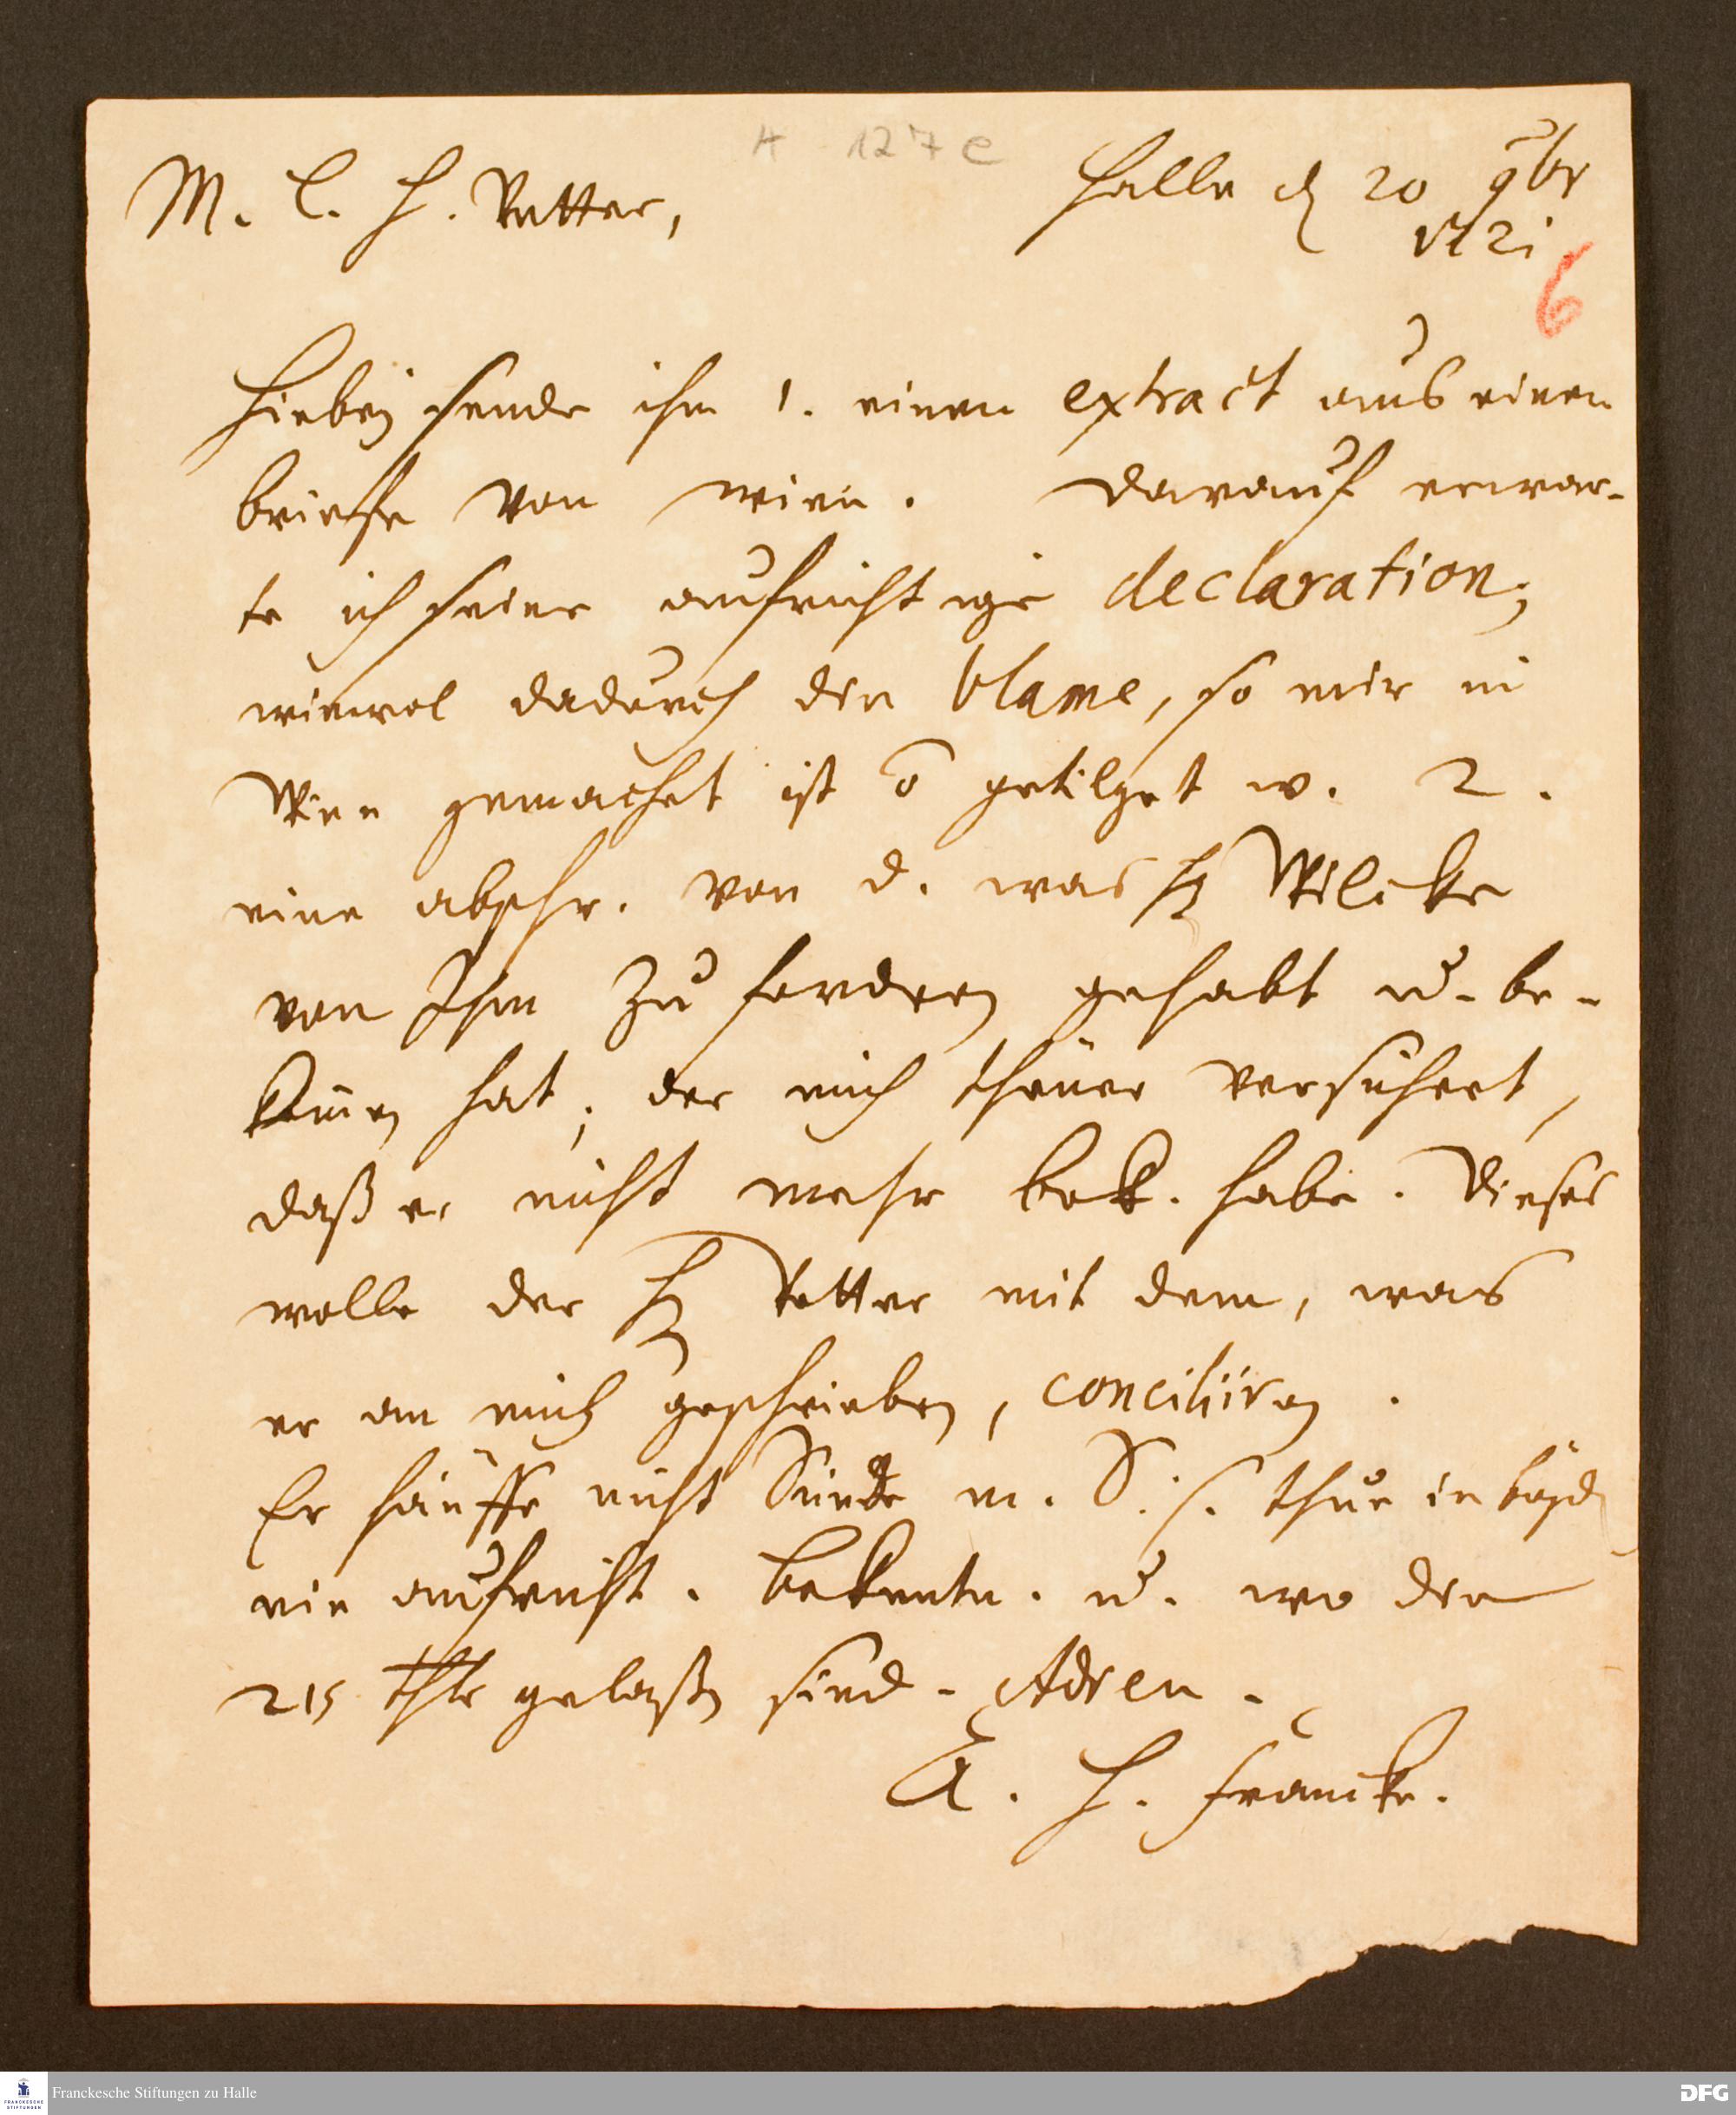 A 127 e
M. l. H. Vetter,
Halle d 20 9br
1721
6
Hiebey sende ihm 1. einen extract aus einem
brieffe von Wien. Darauf erwar-
te ich seine aufrichtige declaration;
wiewol dadurch der blame, so mir in
Wien gemachet ist õ getilget w. 2.
eine abschr. von d. was H Wilcke
von Ihm zu fordern gehabt u. be-
kom̄en hat; der mich theuer versichert,
daß er nicht mehr bek. habe. Dieses
wolle der H Vetter mit dem, was
er an mich geschrieben, conciliiren.
Er häuffe nicht Sünde m. S. s. thue in
ein aufricht. bekentn. u. wo die
215 thlr gelaßen sind. Adieu.
A. H. Francke.
Franckesche Stiftungen zu Halle
FRANCKESCHE
STIFTUNGEN
DFG